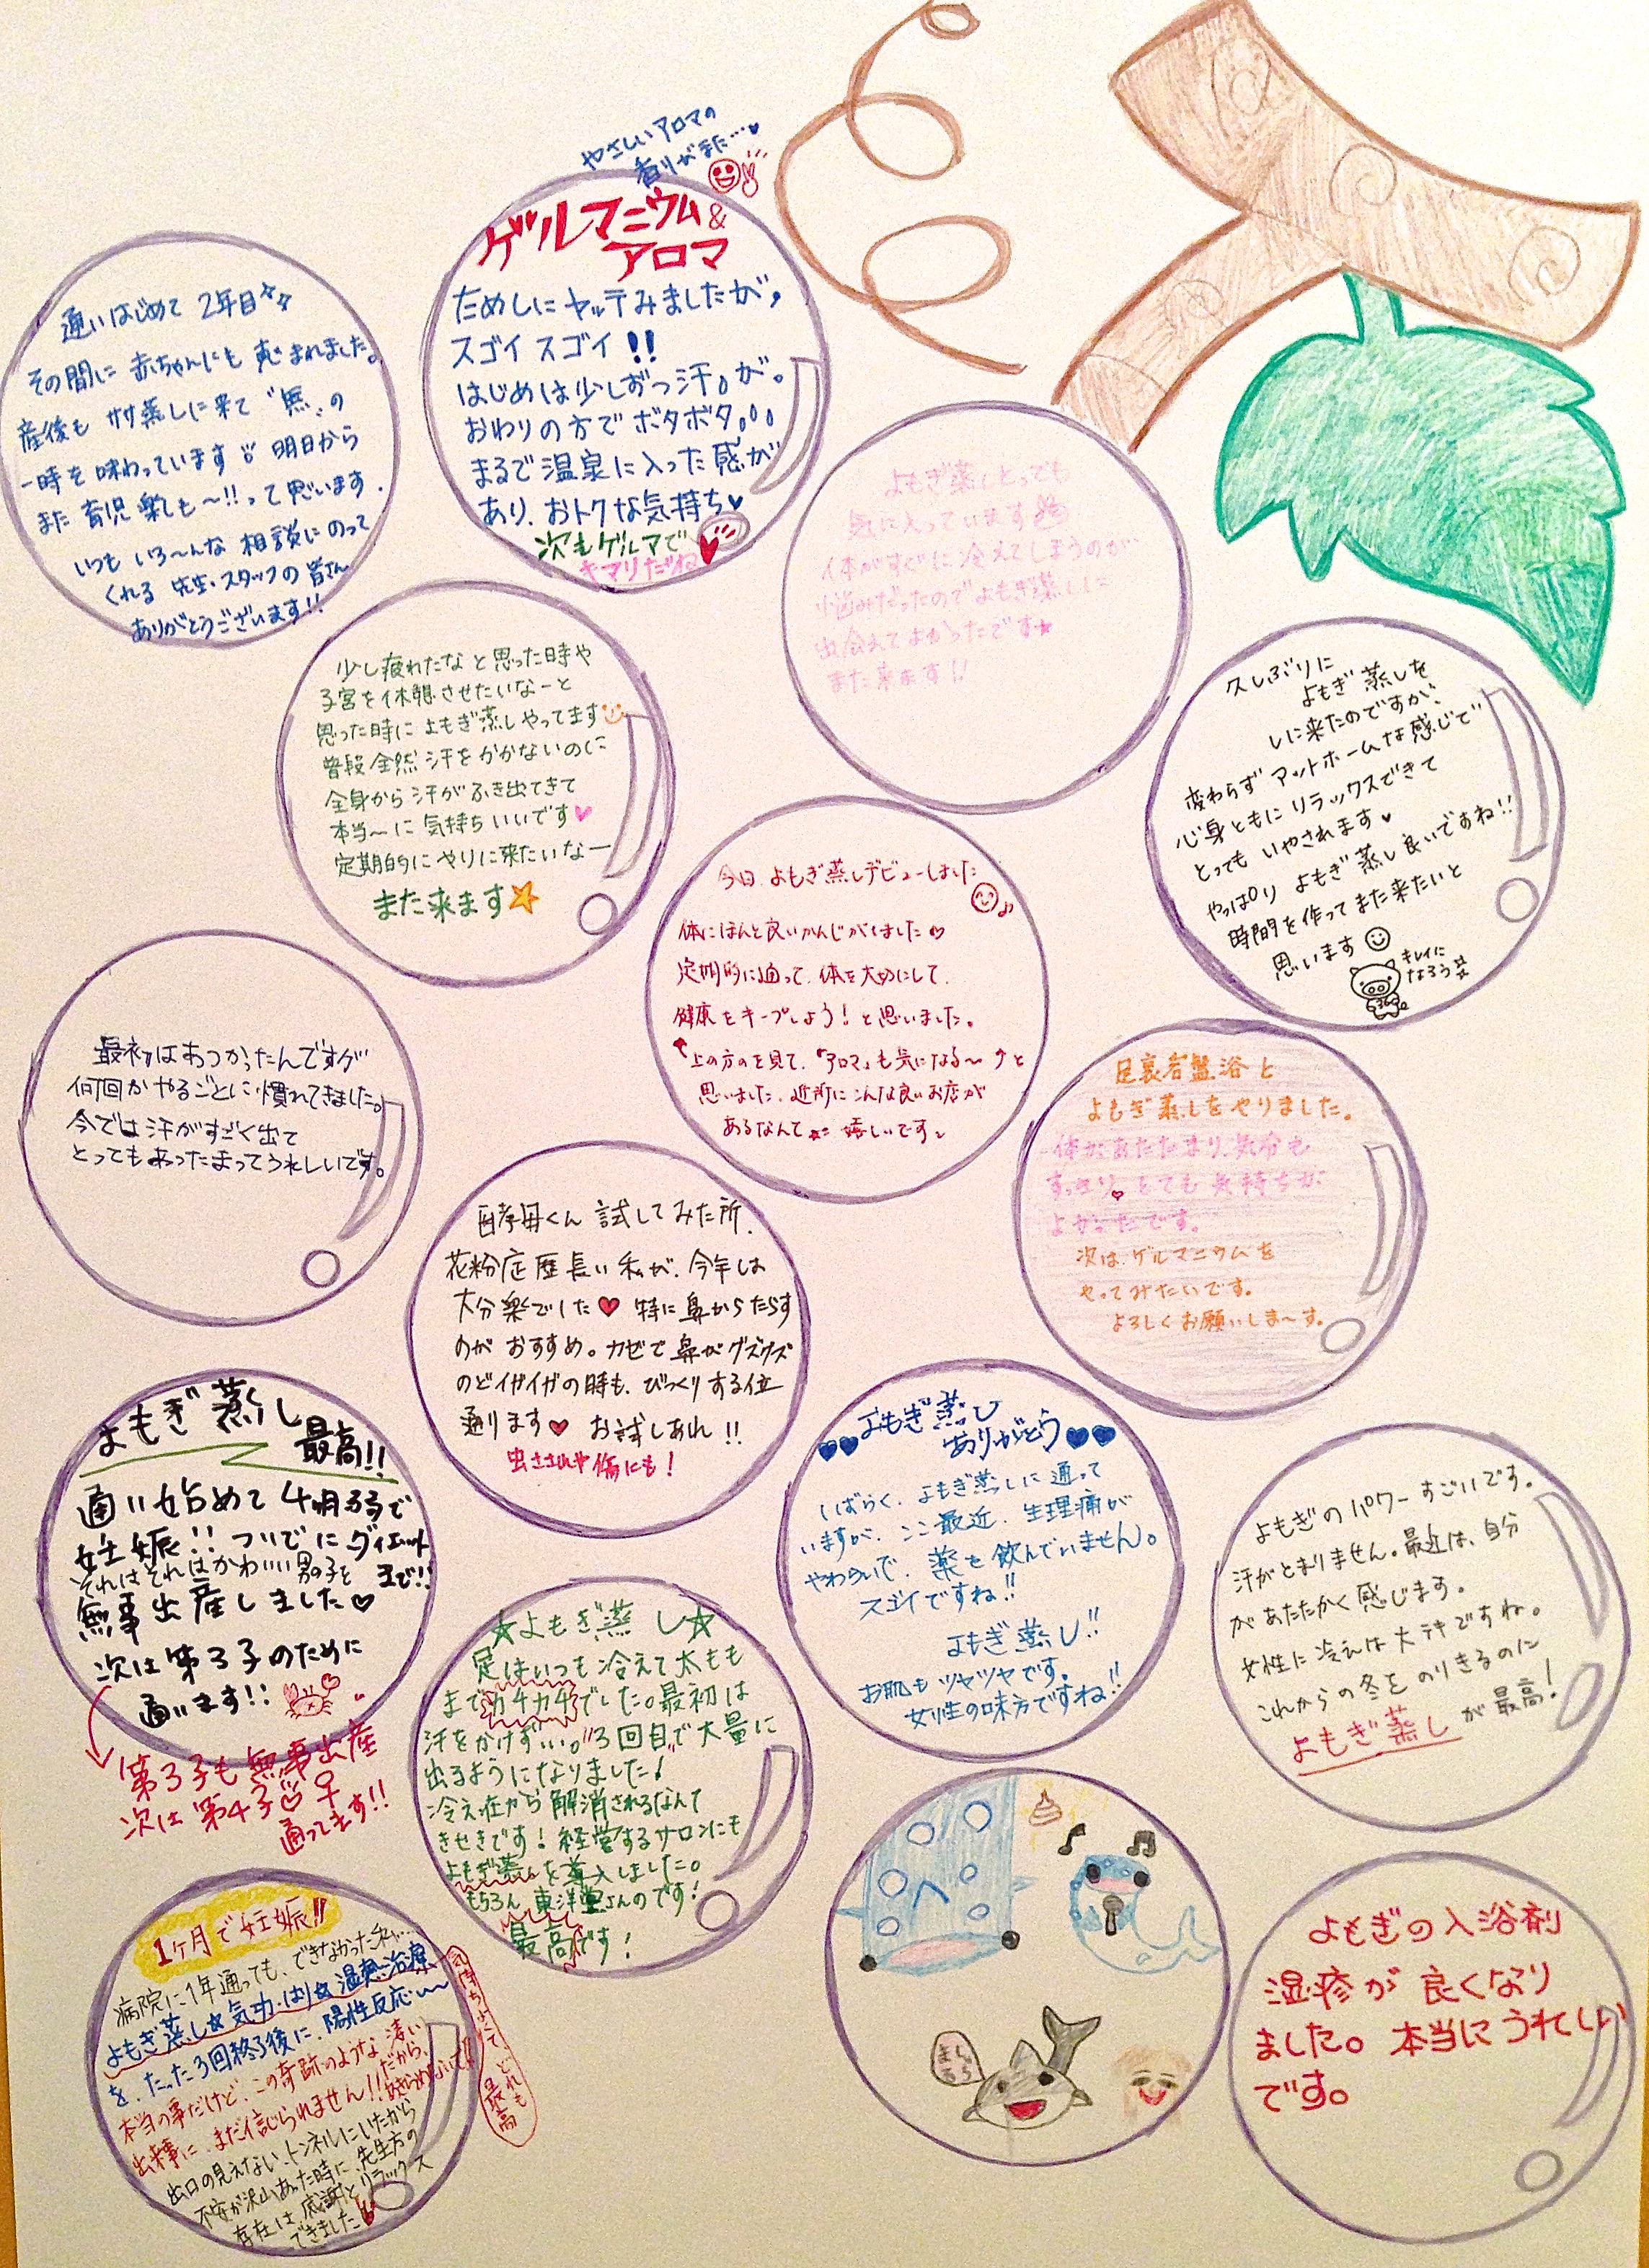 通いはじめて 2年目
その間に 赤ちゃんにも 恵まれました。
産後も 蒸しに来て〝無〟の
一時を味わっています 明日から
また 育児 楽しも〜!!って思います.
いつも いろ〜んな 相談にのって
くれる 先生・スタッフの 皆さん
ありがとうございます!!
やさしいアロマの
香りがまた…♥
ゲルマニウム&
アロマ
ためしにヤッテみましたが,
スゴイ スゴイ !!
はじめは少しずつ汗。が。
おわりの方でボタボタ。。。
まるで温泉に入った感が
あり、おトクな気持ち♥
次もゲルマで
キマリだね
よもぎ蒸しとっても
気に入っています
体がすぐに冷えてしまうのが
悩みだったのでよもぎ蒸しに
出会えてよかったです★
また来ます!!
少し疲れたなと思った時や
子宮を休憩させたいなーと
思った時によもぎ蒸しやってます
普段全然汗をかかないのに
全身から汗がふき出てきて
本当〜に気持ちいいです♥
定期的にやりに来たいなー
また来ます★
久しぶりに
よもぎ蒸しを
しに来たのですが、
変わらずアットホームな感じで
心身ともにリラックスできて
とってもいやされます♥
やっぱりよもぎ蒸し良いですね!!
時間を作ってまた来たいと
思います
キレイに
なろう
今日、よもぎ蒸しデビューしました
体にほんと良いかんじがしました♡
定期的に通って、体を大切にして、
健康をキープしよう!と思いました。
↑上の方のを見て、「アロマ」も気になる〜↗と
思いました。近所にこんな良いお店が
あるなんて 嬉しいです
最初はあつかったんですが
何回かやるごとに慣れてきました。
今では汗がすごく出て
とってもあったまってうれしいです。
足裏岩盤浴と
よもぎ蒸しをやりました。
体があたたまり、気分も
すっきり♥とても気持ちが
よかったです。
次は、ゲルマニウムを
やってみたいです。
よろしくお願いしま〜す。
酵母くん 試してみた所、
花粉症歴長い私が、今年は
大分楽でした♥ 特に鼻からたらす
のが おすすめ。カゼで鼻がグズグズ
のどイガイガの時も、びっくりする位
通ります♥ お試しあれ!!
虫さされや傷にも!
よもぎ蒸し
最高!!
通い始めて4ヶ月弱で
妊娠!!ついでにダイエット
まで!!
それはそれはかわいい男の子を
無事出産しました♡
次は第3子のために
通います!!
第3子も無事出産
次は第4子♡♀
通ってます!!
よもぎ蒸し
ありがとう
しばらく、よもぎ蒸しに通って
いますが、ここ最近、生理痛が
やわらいで、薬を飲んでいません。
スゴイですね!!
よもぎ蒸し!!
お肌もツヤツヤです。
女性の味方ですね!!
よもぎのパワーすごいです。
汗がとまりません。最近は、自分
があたたかく感じます。
女性に冷えは大テキですね。
これからの冬をのりきるのに
よもぎ蒸しが最高!
☆よもぎ蒸し☆
足はいつも冷えて太もも
までカチカチでした。最初は
汗をかけず…。〝3回目〟で大量に
出るようになりました!
冷え症から解消されるなんて
きせきです!経営するサロンにも
よもぎ蒸しを導入しました。
もちろん 東洋堂さんのです!
最高です!
1ヶ月で妊娠!!
病院に1年通っても、できなかった私…
よもぎ蒸し☆気功・はり☆温熱治療
を、たった3回終了後に、陽性反応〜
本当の事だけど、この奇跡のような凄い
出来事に、まだ信じられません!!だから、
あきらめないで!!
出口の見えないトンネルにいたから
不安が沢山あった時に、先生方の
存在は、感謝とリラックス
できました
気持ちよくて、とれも
最高
よもぎの入浴剤
湿疹が良くなり
ました。本当にうれしい
です。